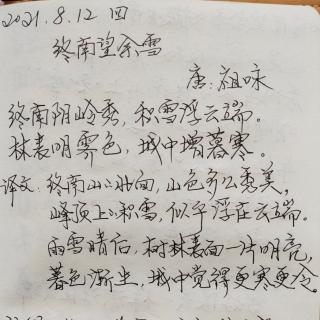 2021.8.12 四
终南望余雪
唐:祖咏
终南阴岭秀,积雪浮云端。
林表明霁色,城中增暮寒。
译文:终南山的北面,山色多么秀美,
峰顶上的积雪,似乎浮在云端。
雨雪晴后,树林表面一片明亮,
暮色渐生,城中觉得更寒更冷。